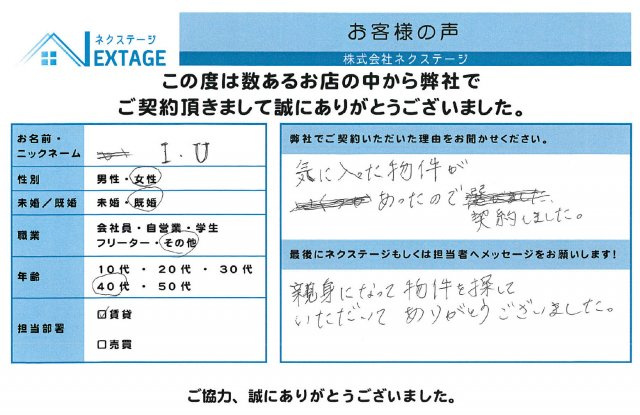 ネクステージ
NEXTAGE
お客様の声
株式会社ネクステージ
この度は数あるお店の中から弊社で
ご契約頂きまして誠にありがとうございました。
お名前・
ニックネーム
I.U
性別
男性・女性
未婚/既婚
未婚・既婚
職業
会社員・自営業・学生
フリーター・その他
年齢
10代 ・ 20代 ・ 30代
40代 ・ 50代
担当部署
☑賃貸
□売買
弊社でご契約いただいた理由をお聞かせください。
気に入った物件が
あったので
契約しました。
最後にネクステージもしくは担当者へメッセージをお願いします!
親身になって物件を探して
いただいて ありがとうございました。
ご協力、誠にありがとうございました。